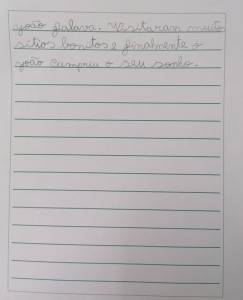 joão falava. Visitaram muito
sítios bonitos e finalmente o
joão cumpriu o seu sonho.